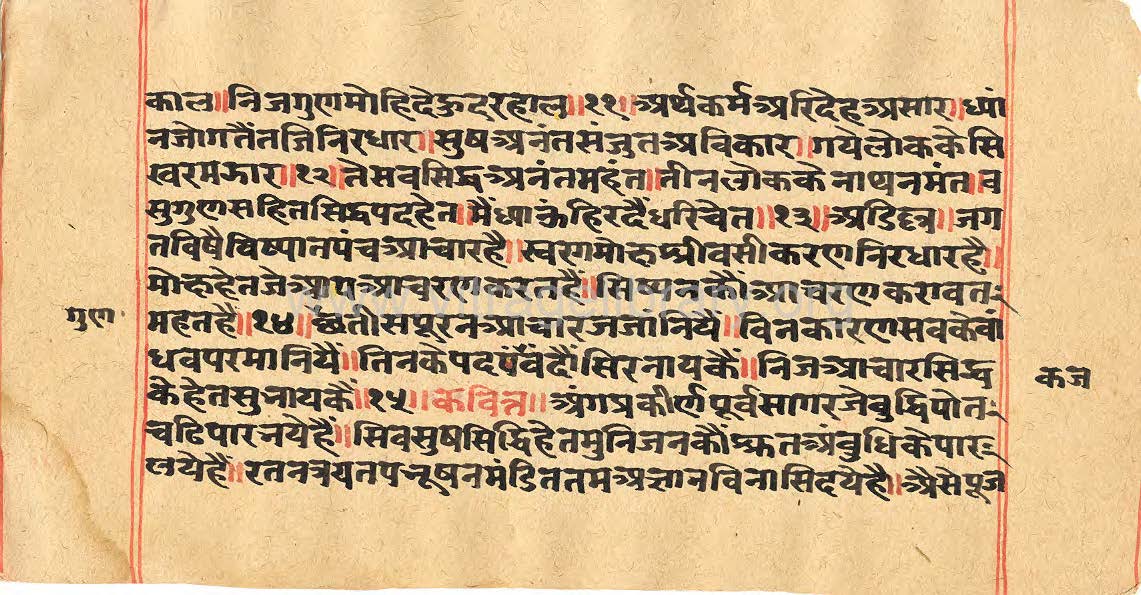 काल॥निजगुणमोहिदेऊदरहाल॥११॥अर्थकर्मअरिदेहअसार॥ध्यां
नजोगतैंतजिनिरधार॥सुषअनंतसंजुतअविकार॥गयेलोककेसि
खरमझार॥१२॥तेसबसिद्धअनंतमहंत॥तीनलोककेनाथनमंत॥व
सुगुणसहितसिद्धपदहेत॥मैंध्याऊंहिरदैंधरिचेत॥१३॥अडिल्ल॥जग
तविषैविष्यानपंचआचारहै॥स्वरगमोक्षश्रीवसीकरणनिरधारहै॥
मोक्षहेतजेआपआचरणकरतहैं॥सिष्यनकौंआचरणकरावत
महतहैं॥१४॥छत्तीसपूरनआचारजजानियैं॥विनकारणसबकेबां
धवपरमानियैं॥तिनकेपदपंबंदौंसिरनायकैं॥निजआचारसिद्ध
केहेतसुनायकैं॥१५॥कवित्त॥अंगप्रकीर्णपूर्वसागरजेबुद्धिपोत
चढिपारनयेहैं॥सिवसुषसिद्धिहेतमुनिजनकौंश्रुतअंबुधिकेपार
णयेहैं॥रतनत्रयतपभूषनमंडिततमअज्ञानविनासिदयेहै॥अैसेपूज
गुण
कज
www.viragelibrary.org